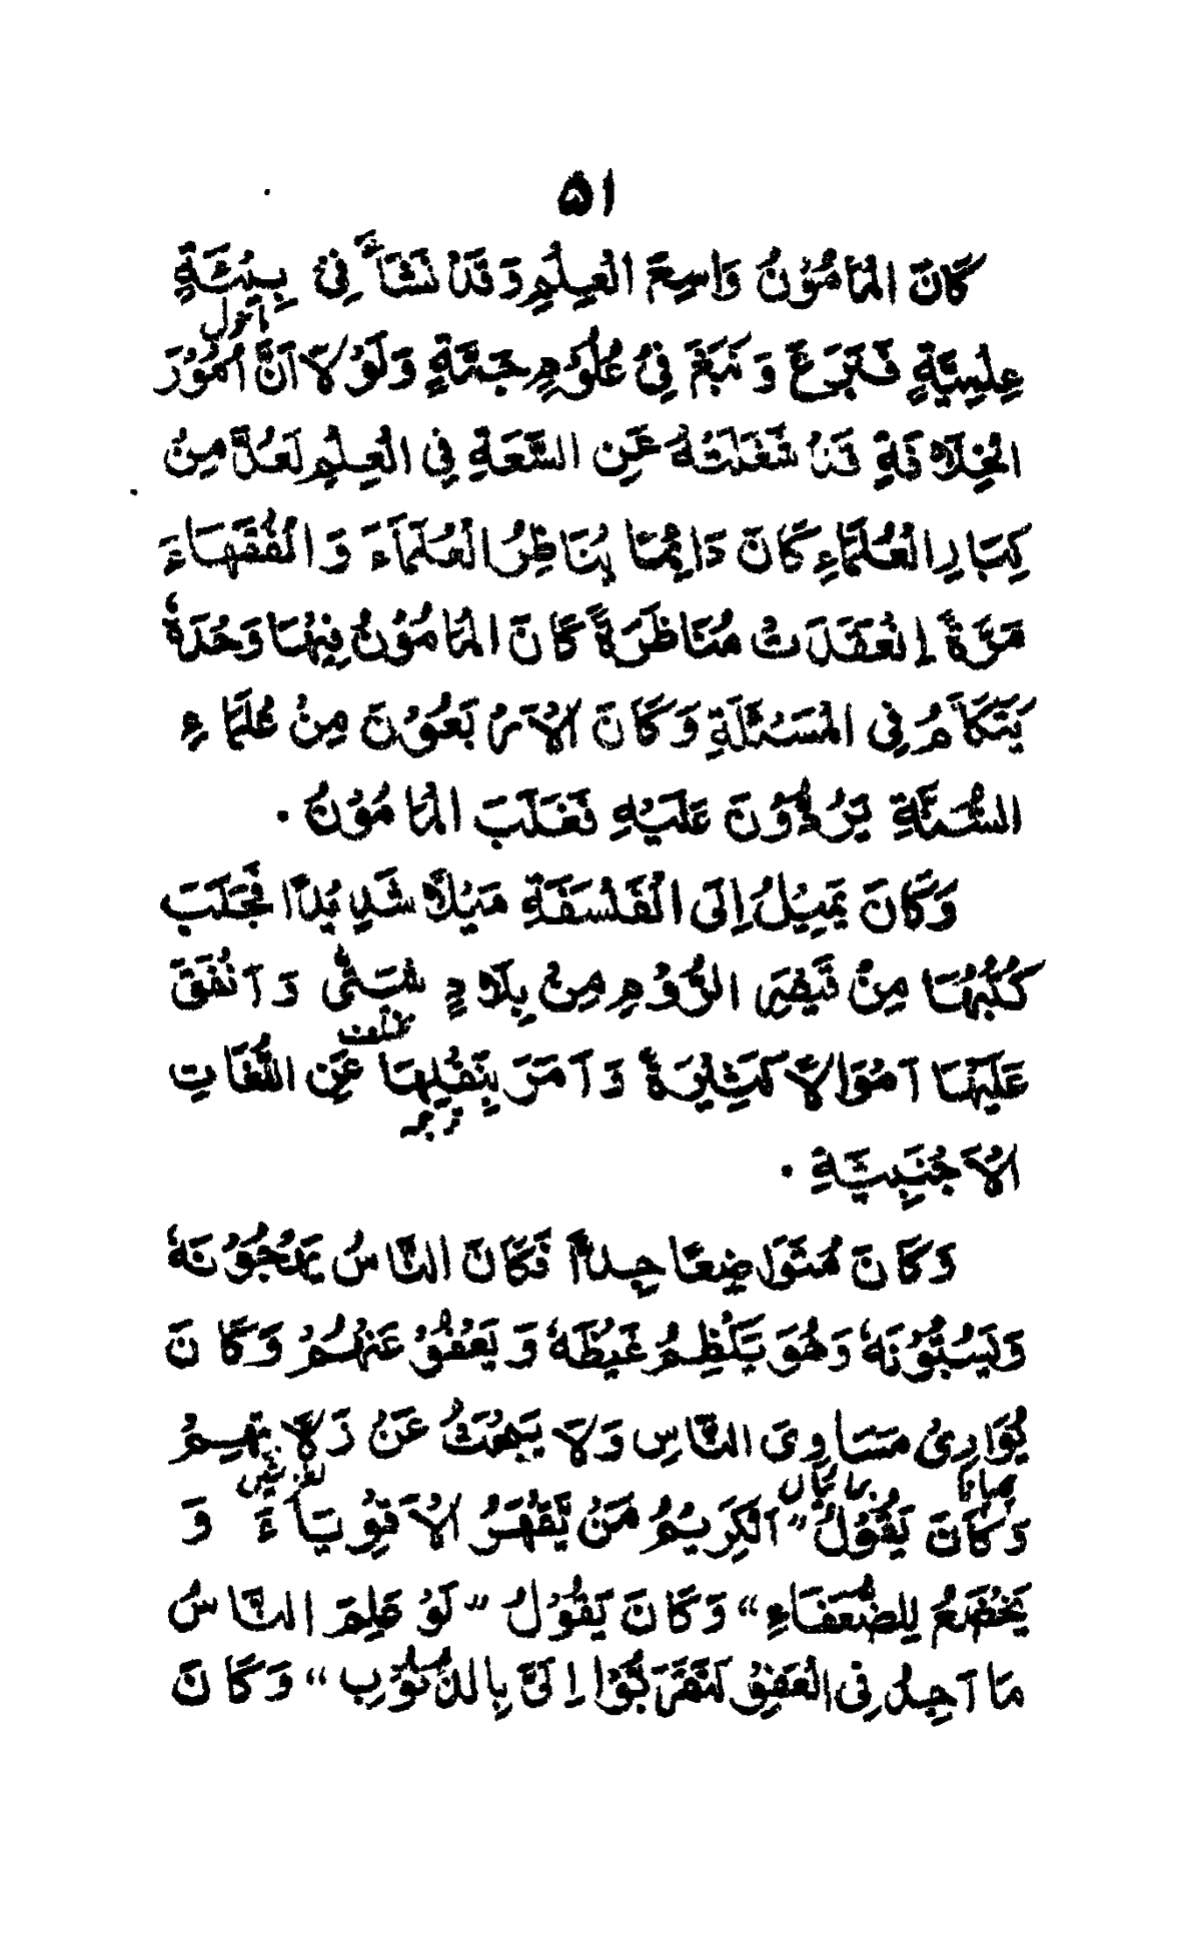 ۵۱
كَانَ الْمَامُوْنُ وَاسِعَ الْعِلْمِ وَقَدْ نَشَأَ فِیْ بِيْئَةٍ
ماحول
عِلْمِيَّةٍ فَبَرَعَ وَنَبَغَ فِیْ عُلُوْمٍ جَمَّةٍ وَلَوْلَا اَنَّ اُمُوْرَ
الْخِلَافَةِ قَدْ شَغَلَتْهُ عَنِ السَّعَةِ فِی الْعِلْمِ لَعُدَّ مِنْ
كِبَارِ الْعُلَمَاءِ كَانَ دَائِمًا يُنَاظِرُ الْعُلَمَآءَ وَالْفُقَهَاءَ
مَرَّةً اِنْعَقَدَتْ مُنَاظَرَةً كَانَ الْمَامُوْنُ فِيْهَا وَحْدَهٗ
يَتَكَلَّمُ فِی الْمَسْئَلَةِ وَكَانَ الْاَرْبَعُوْنَ مِنْ عُلَمَاءِ
السُّنَّةِ يَرُدُّوْنَ عَلَيْهِ فَغَلَبَ الْمَامُوْنُ ۔
وَكَانَ يَمِيْلُ اِلَى الْفَلْسَفَةِ مَيْلًا شَدِيْدًا فَجَلَبَ
كُتُبَهَا مِنْ قَيْصَرِ الرُّوْمِ مِنْ بِلَادٍ شَتّٰى وَاَنْفَقَ
مختلف
عَلَيْهَا اَمْوَالًا كَثِيْرَةً وَاَمَرَ بِنَقْلِهَا عَنِ اللُّغَاتِ
ترجمہ
الْاَجْنَبِيَّةِ ۔
وَكَانَ مُتَوَاضِعًا جِدًّا فَكَانَ النَّاسُ يَهْجُوْنَهٗ
وَيَسُبُّوْنَهٗ وَهُوَ يَكْظِمُ غَيْظَهٗ وَيَعْفُوْ عَنْهُمْ وَكَانَ
يُوَارِیْ مَسَاوِیَ النَّاسِ وَلَا يَبْحَثُ عَنْ زَلَّاتِهِمْ
چھپاتا برائیاں لغزشیں
وَكَانَ يَقُوْلُ "اَلْكَرِيْمُ مَنْ يَقْهَرُ الْاَقْوِيَاءَ وَ
يَخْضَعُ لِلضُّعَفَاءِ" وَكَانَ يَقُوْلُ "لَوْ عَلِمَ النَّاسُ
مَا اَجِدُ فِی الْعَفْوِ لَتَقَرَّبُوْا اِلَیَّ بِالذُّنُوْبِ" وَكَانَ